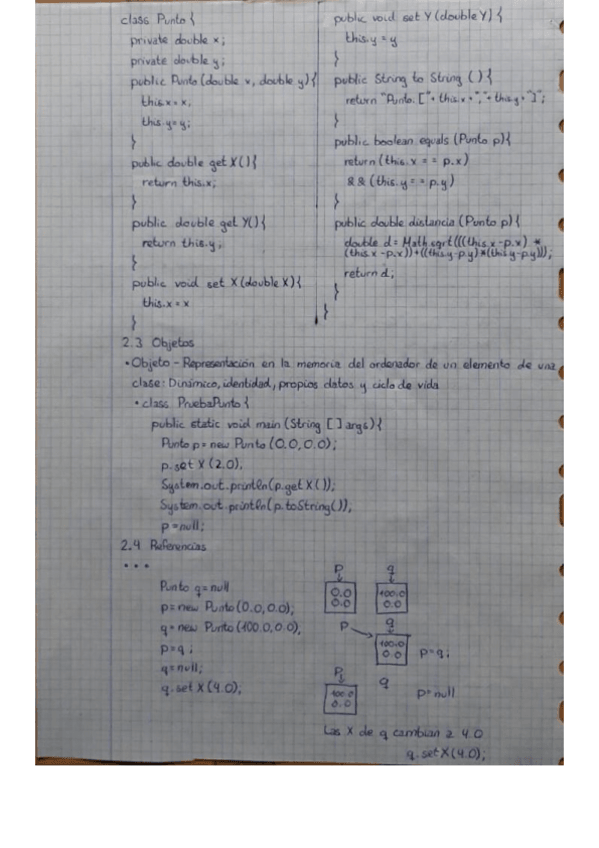 class Punto {
private double x;
private double y;
public Punto (double x, double y) {
this.x = x;
this.y = y;
}
public double get X () {
return this.x;
}
public double get Y() {
return this.y;
}
public void set X (double X) {
this.x = x
}
public void set Y (double Y) {
this.y = y
}
public String to String () {
return "Punto: [" + this.x + "," + this.y + "]";
}
public boolean equals (Punto p) {
return (this.x == p.x)
&& (this.y == p.y)
}
public double distancia (Punto p) {
double d = Math.sqrt (((this.x - p.x) *
(this.x - p.x)) + ((this.y - p.y) * (this.y - p.y)));
return d;
}
}
2.3 Objetos
• Objeto - Representación en la memoria del ordenador de un elemento de una
clase: Dinámico, identidad, propios datos y ciclo de vida
• class PruebaPunto {
public static void main (String [] args) {
Punto p = new Punto (0.0, 0.0);
p. set X (2.0),
System.out.println (p.get X ());
System.out.println (p.toString ());
p = null;
2.4 Referencias
...
Punto q = null
p = new Punto (0.0, 0.0);
q = new Punto (100.0, 0.0),
p = q ;
q = null;
q. set X (4.0);
p q
0.0 100.0
0.0 0.0
p q
100.0
0.0 p = q ;
p q
100.0 p = null
0.0
Las X de q cambian a 4.0
q. set X (4.0);